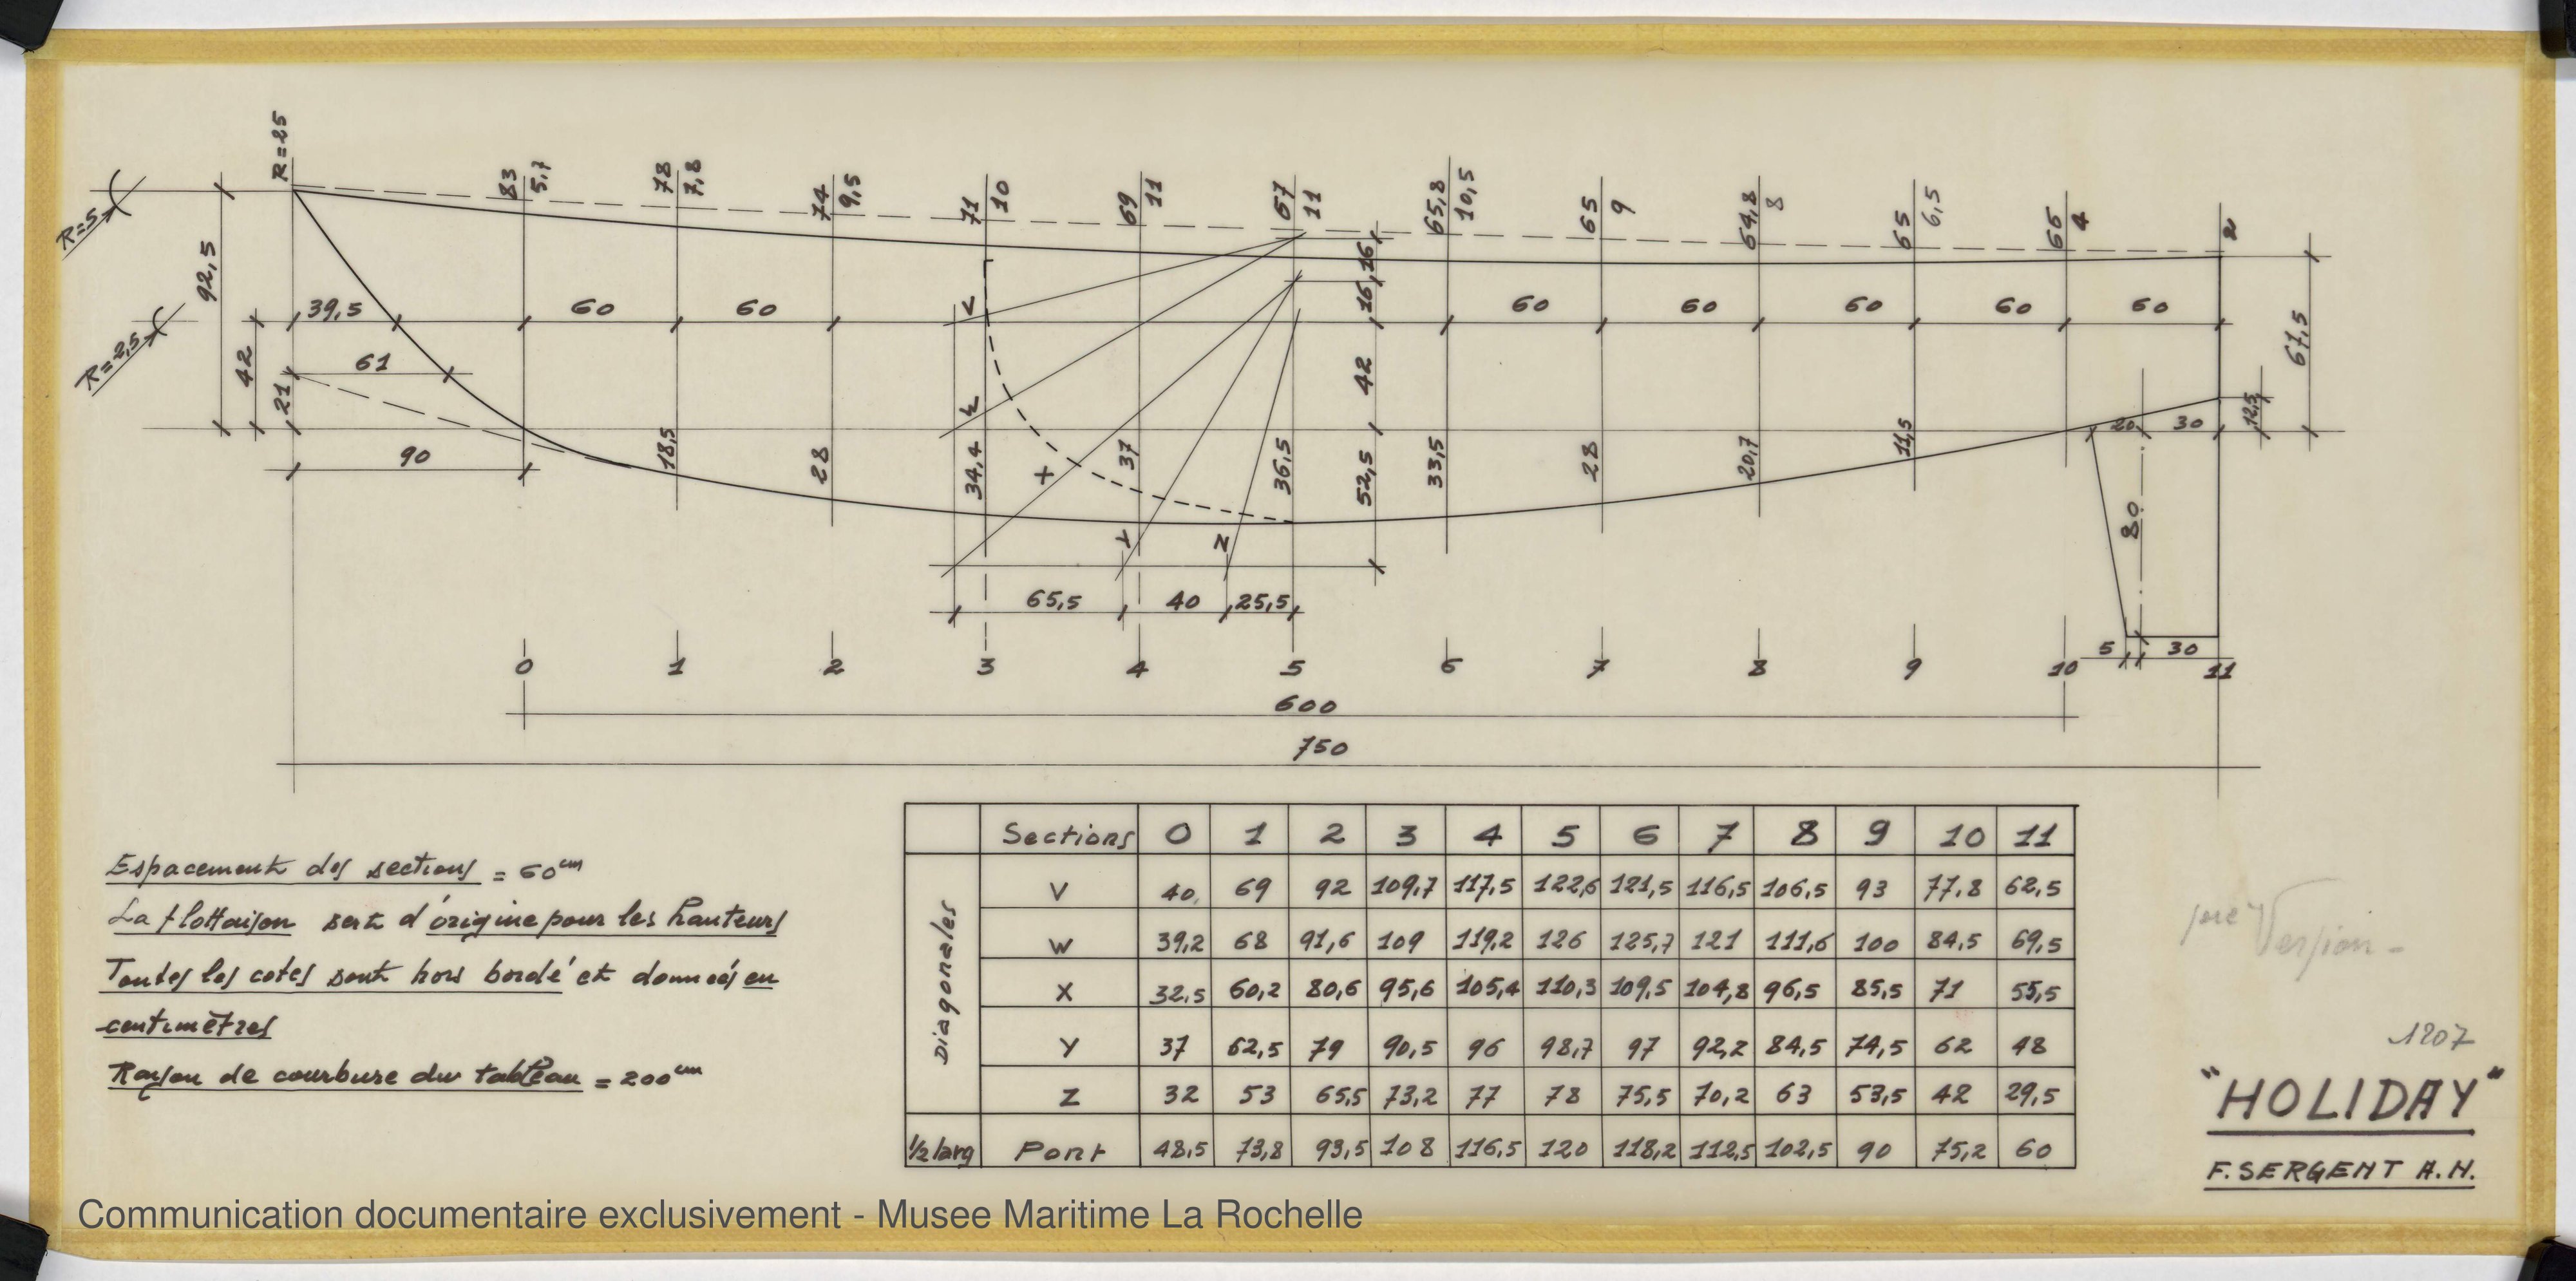 R=25
83 5,7
78 7,8
74 9,5
71 10
69 11
67 11
65,8 10,5
65 9
64,8 8
65 6,5
66 4
2
R=5
92,5
39,5
60
60
V
16 16
60
60
60
60
60
R=2,5
42
61
21
W
42
67,5
90
18,5
28
34,4
X
37
36,5
52,5
33,5
28
20,7
11,5
20
30
12,5
Y
Z
80
65,5
40
25,5
0 1 2 3 4 5 6 7 8 9 10 11
5
30
600
750
Espacement des sections = 60 cm
La flottaison sert d'origine pour les hauteurs
Toutes les cotes sont hors bordé et données en
centimètres
Rayon de courbure du tableau = 200 cm
Sections 0 1 2 3 4 5 6 7 8 9 10 11
Diagonales
V 40 69 92 109,7 117,5 122,6 121,5 116,5 106,5 93 77,8 62,5
W 39,2 68 91,6 109 119,2 126 125,7 121 111,6 100 84,5 69,5
X 32,5 60,2 80,6 95,6 105,4 110,3 109,5 104,8 96,5 85,5 71 55,5
Y 37 62,5 79 90,5 96 98,7 97 92,2 84,5 74,5 62 48
Z 32 53 65,5 73,2 77 78 75,5 70,2 63 53,5 42 29,5
1/2 larg Pont 48,5 73,8 93,5 108 116,5 120 118,2 112,5 102,5 90 75,2 60
1ère Version -
1207
"HOLIDAY"
F. SERGENT A.N.
Communication documentaire exclusivement - Musee Maritime La Rochelle